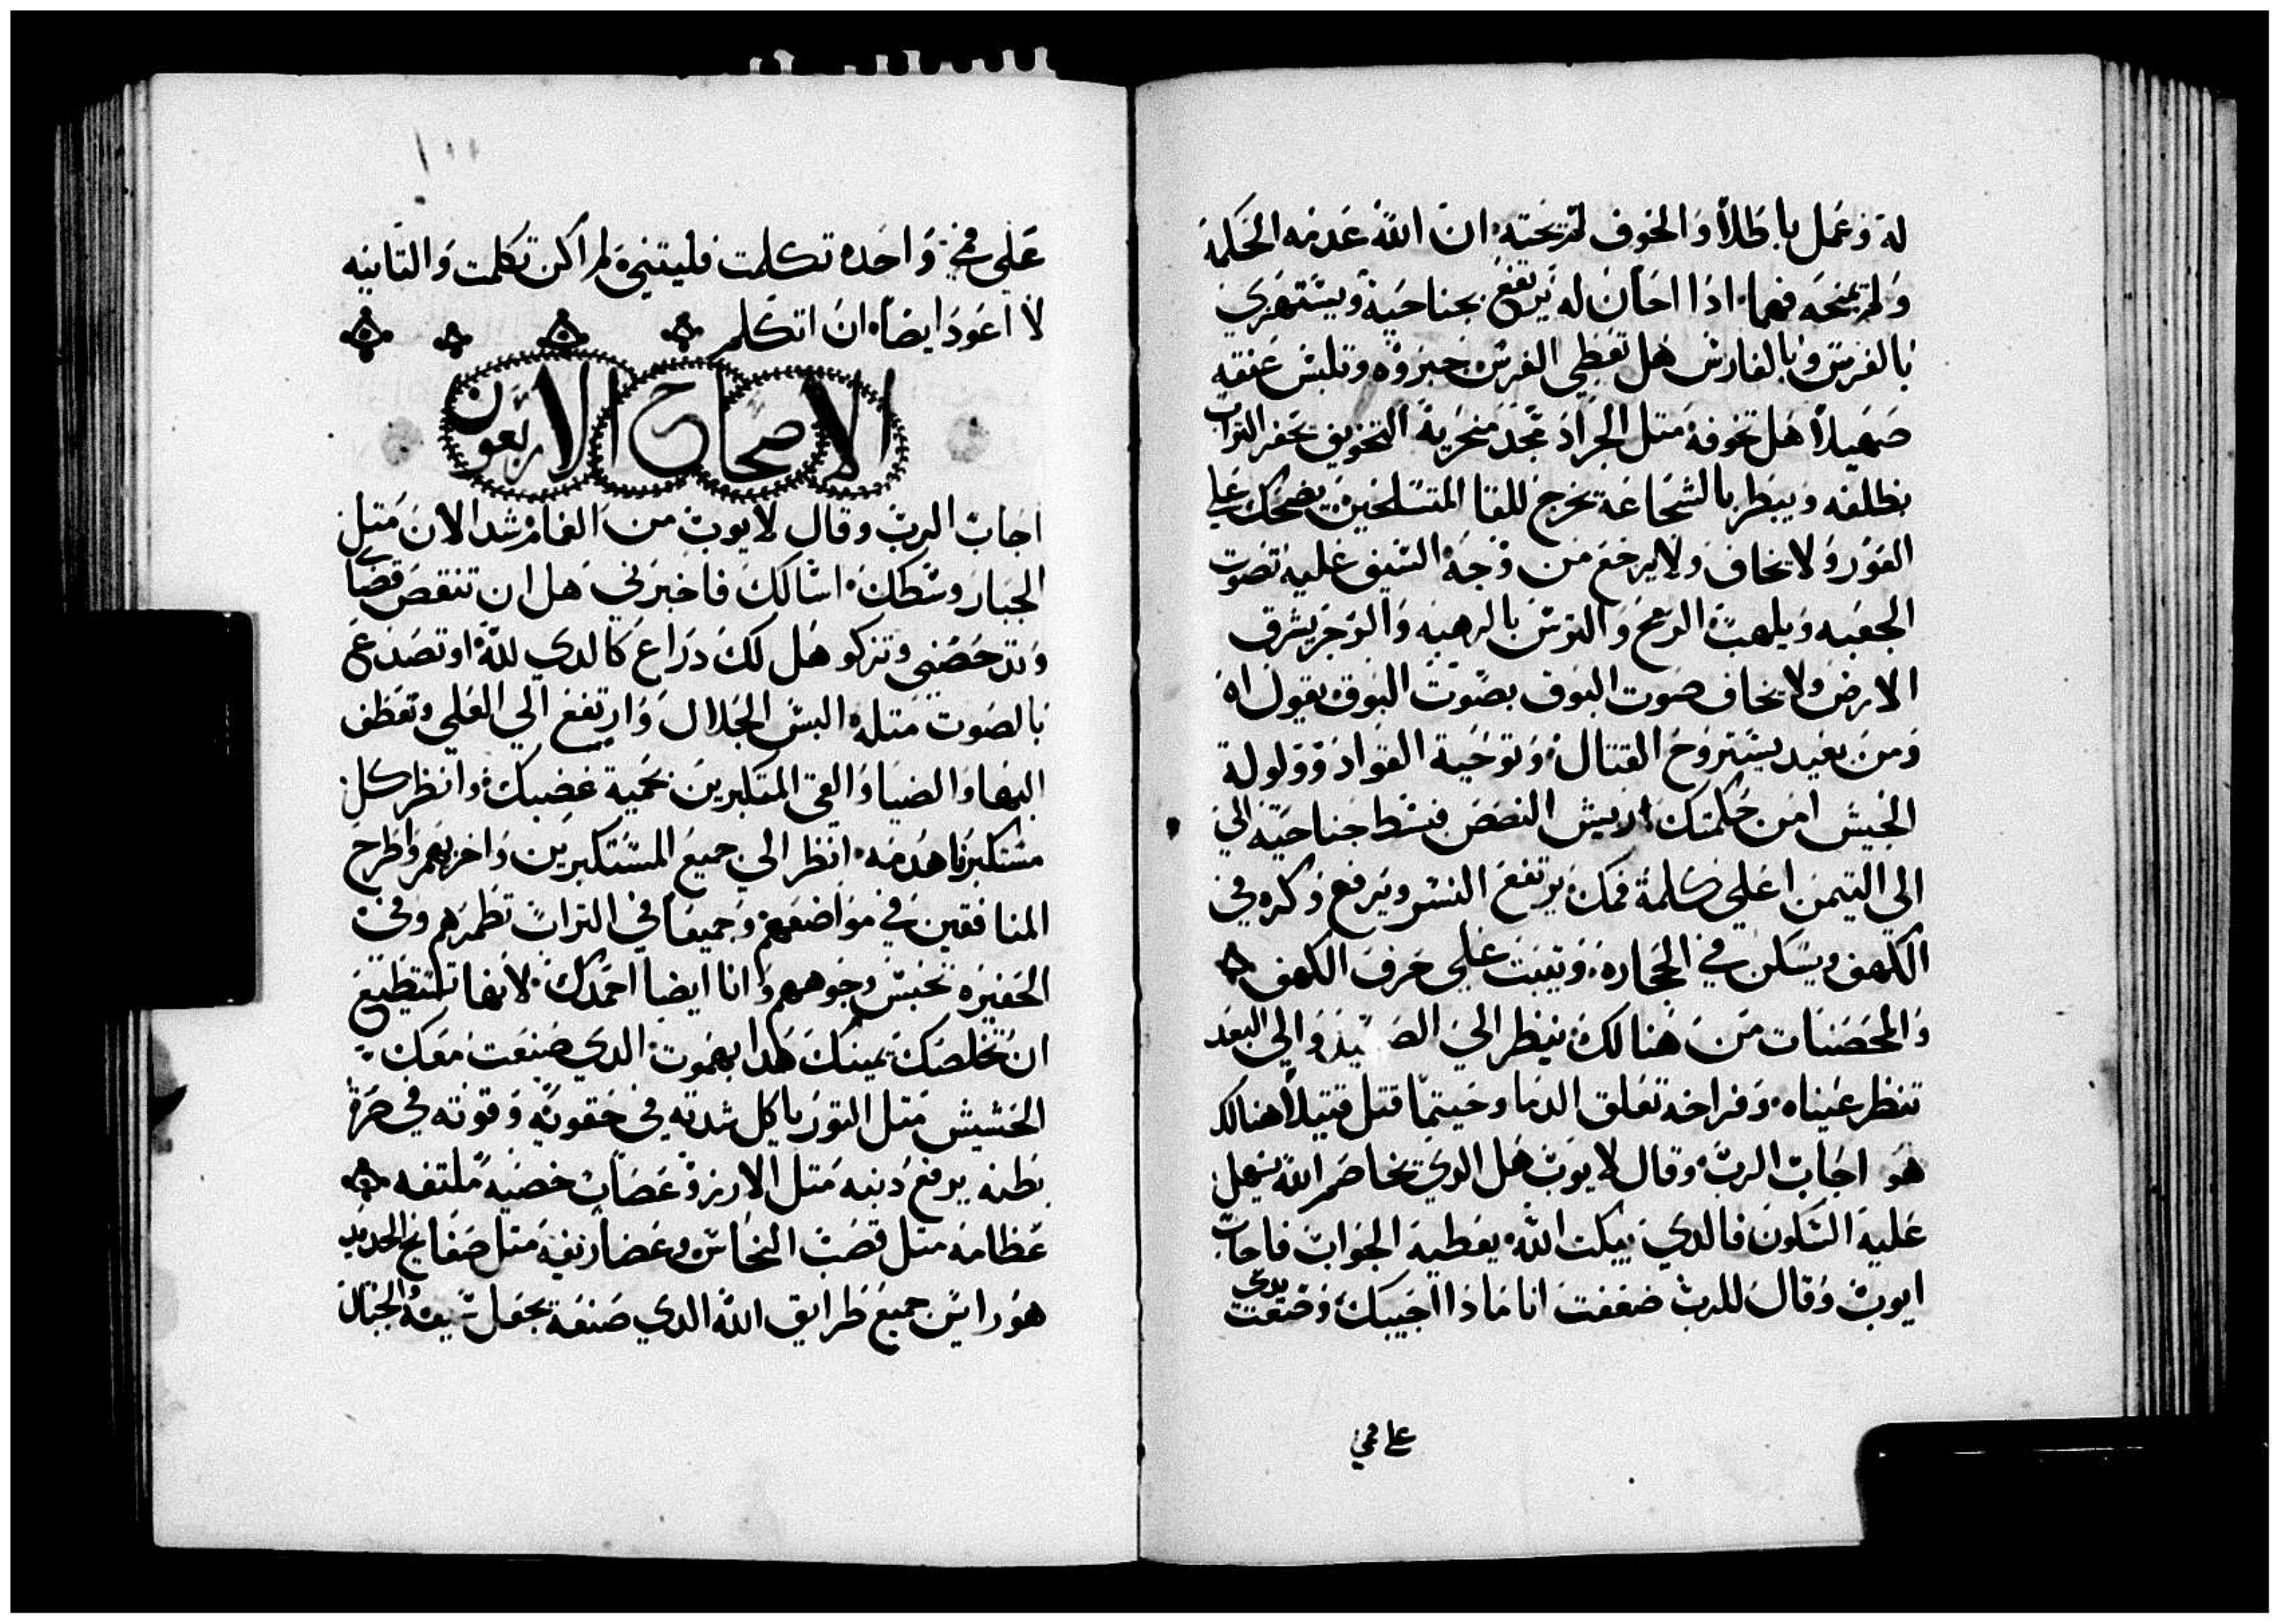 له وعمل باطلاً والخوف لم يحته ان الله عدمه الحكمة
ولم يمنحه فهماً اذا احان له يرتفع بجناحيه ويستهزي
بالفرس وبالفارس هل تعطي الفرس جبروة وتلبس عنقه
صهيلاً هل تخوفه متل الجراد مجد منخريه التخويف يحفر التراب
بظلفه ويبطر بالشجاعة يخرج للقا المتسلحين يضحك علي
الفور ولا يخاف ولا يرجع من وجه السيف عليه تصوت
الجعبه ويلهب الرمح والترس بالرهبه والوجز يشرف
الارض ولا يخاف صوت البوق بصوت البوق يقول اه
ومن بعيد يستروح القتال وتوحية القواد وولولة
الجيش امن حكمتك اريش النصص فبسط جناحيه الي
الي التيمن اعلي كلمة فمك يرتفع النسر ويرفع وكره في
الكهف ويسكن في الحجاره ويتبت علي حرف الكهف
والمحصنات من هنالك ينظر الي الصيد والي البعد
تنظر عيناه وفراخه تعلق الدما وحيتما قتل قتيلاً هنالك
هو اجاب الرب وقال لايوب هل الدي يخاصم الله يسهل
عليه السكون فالدي يبكت الله يعطيه الجواب فاجاب
ايوب وقال للرب ضعفت انا ماذا اجيبك وضعت يدي
علي فمي
علي فمي واحده تكلمت فليتني لم اكن تكلمت والتانيه
لا اعود ايضاً ان اتكلم
الاصحاح الاربعون
اجاب الرب وقال لايوب من الغام شد الان متل
الجبار وسطك اسالك فاخبرني هل ان تنقض قضاي
وتدحضني وتزكو هل لك دراع كالدي لله او تصدع
بالصوت متله البس الجلال وارتفع الي العلي وتعطف
البها والضيا والقي المتكبرين بحمية غضبك وانظر كل
مستكبرٍ اهدمه انظر الي جميع المستكبرين واخزيهم واطرح
المنافقين في مواضعهم وجميعاً في التراب تطمرهم وفي
الحفيره تحبس وجوههم وانا ايضاً احمدك لانها تستطيع
ان تخلصك يمينك هدا بهموت الدي صنعت معك
الحشيش متل التور ياكل شدته في حقويه وقوته في صرة
بطنه يرفع دنبه متل الارزه عصاب خصيه ملتفه
عظامه متل قصب النحاس وعضاريفه متل صفايح الحديد
هو رايس جميع طرايق الله الدي صنعه يجعل سيفه الجبال